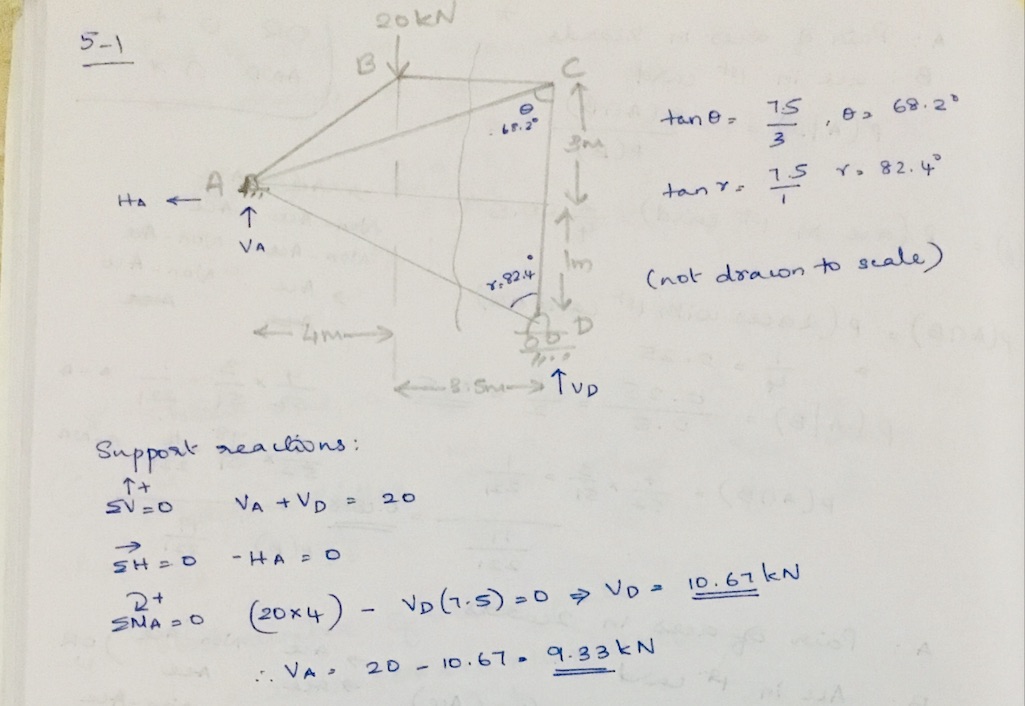 5-1
20kN
B
C
θ
68.2°
3m
A
HA ←
↑
VA
r, 82.4°
1m
D
4m
3.5m
↑ VD
tan θ = 7.5/3 , θ = 68.2°
tan r = 7.5/1 r = 82.4°
(not drawn to scale)
Support reactions:
↑+
ΣV = 0 VA + VD = 20
→
ΣH = 0 - HA = 0
↻+
ΣMA = 0 (20×4) - VD (7.5) = 0 ⇒ VD = 10.67 kN
∴ VA = 20 - 10.67 = 9.33 kN